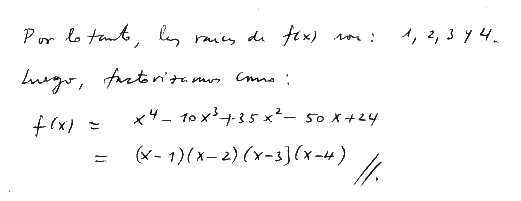 Por lo tanto, las raices de f(x) son: 1, 2, 3 y 4.
Luego, factorizamos como:
f(x) = x⁴ - 10x³ + 35x² - 50x + 24
= (x-1)(x-2)(x-3)(x-4) //.